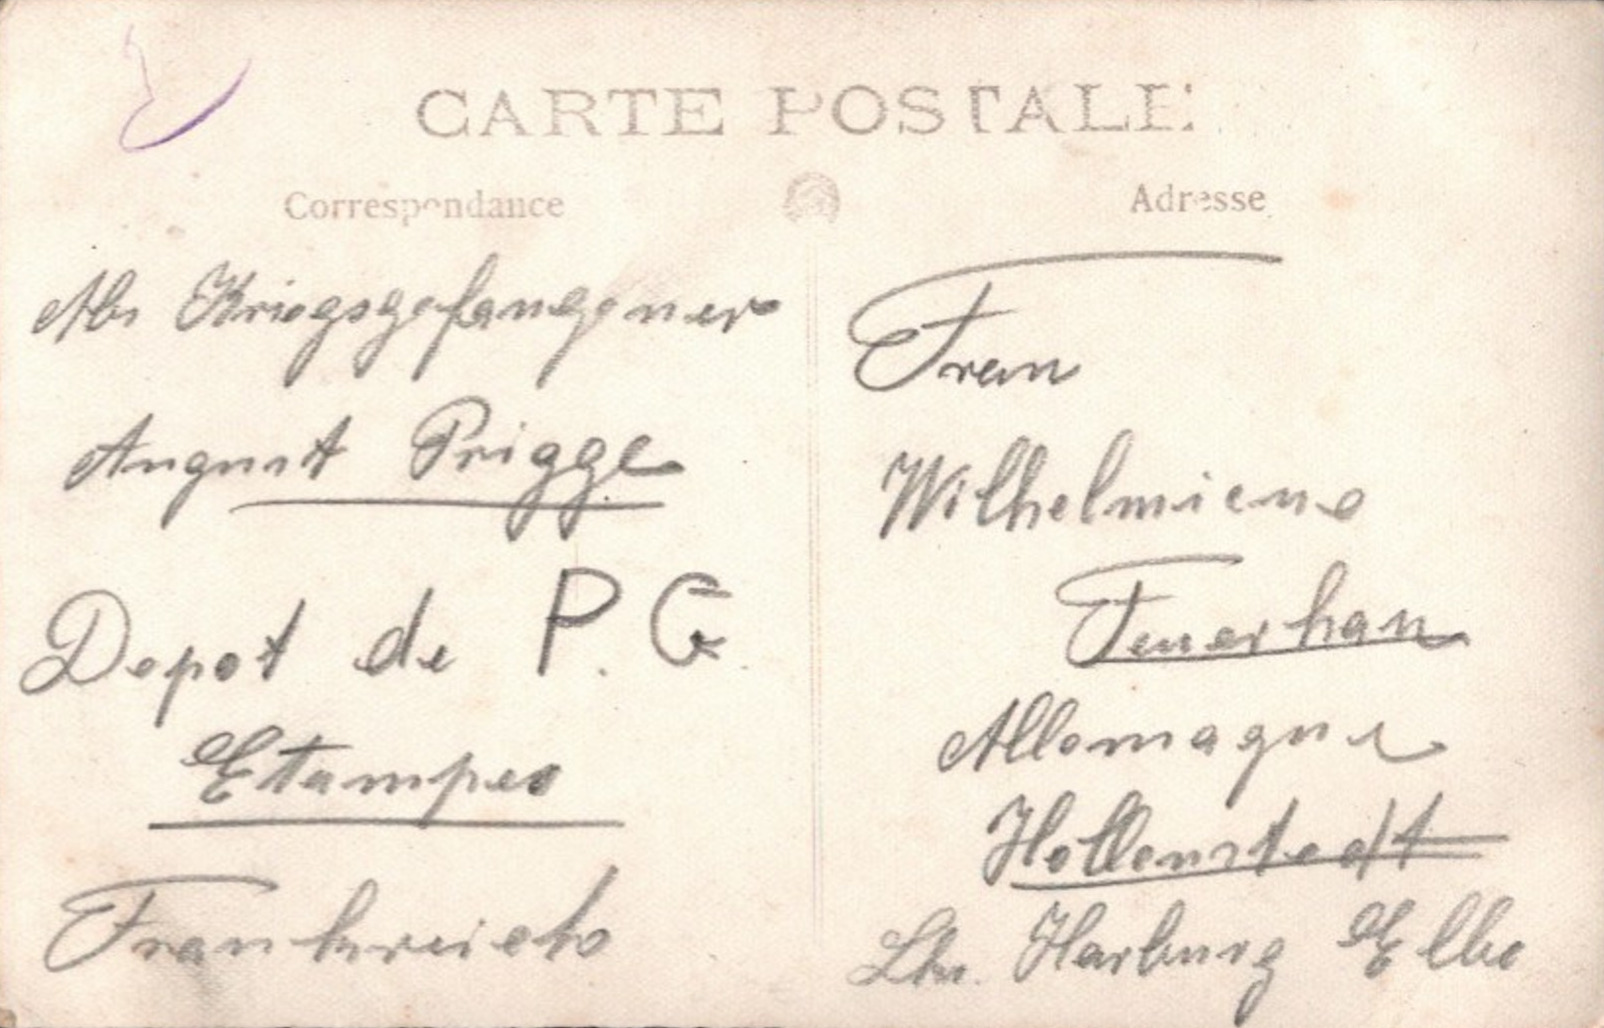 CARTE POSTALE
Correspondance
Abs Kriegsgefangener
August Prigge
Depot de P. G.
Etampes
Frankreich
Adresse
Frau
Wilhelmiene
Feuerhan
Allemagne
Hollenstedt
Kr. Harburg Elbe